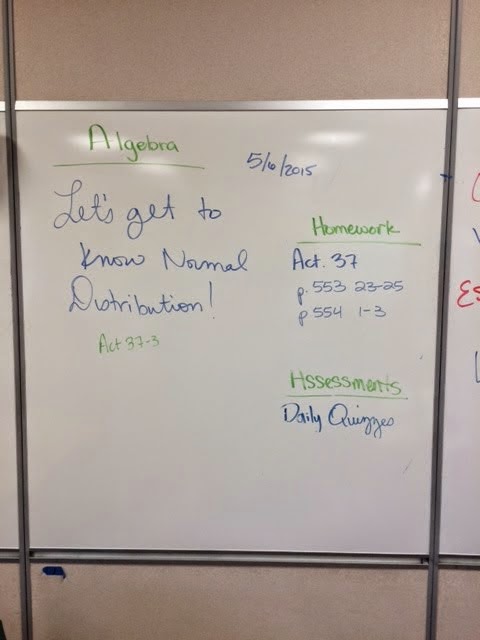 Algebra
5/6/2015
Let's get to
Know Normal
Distribution!
Act 37-3
Homework
Act. 37
p. 553 23-25
p 554 1-3
Assessments
Daily Quizzes